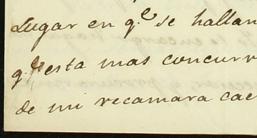 Lugar en qͤ se hallan
qͤ esta mas concurr
de mi recamara cae